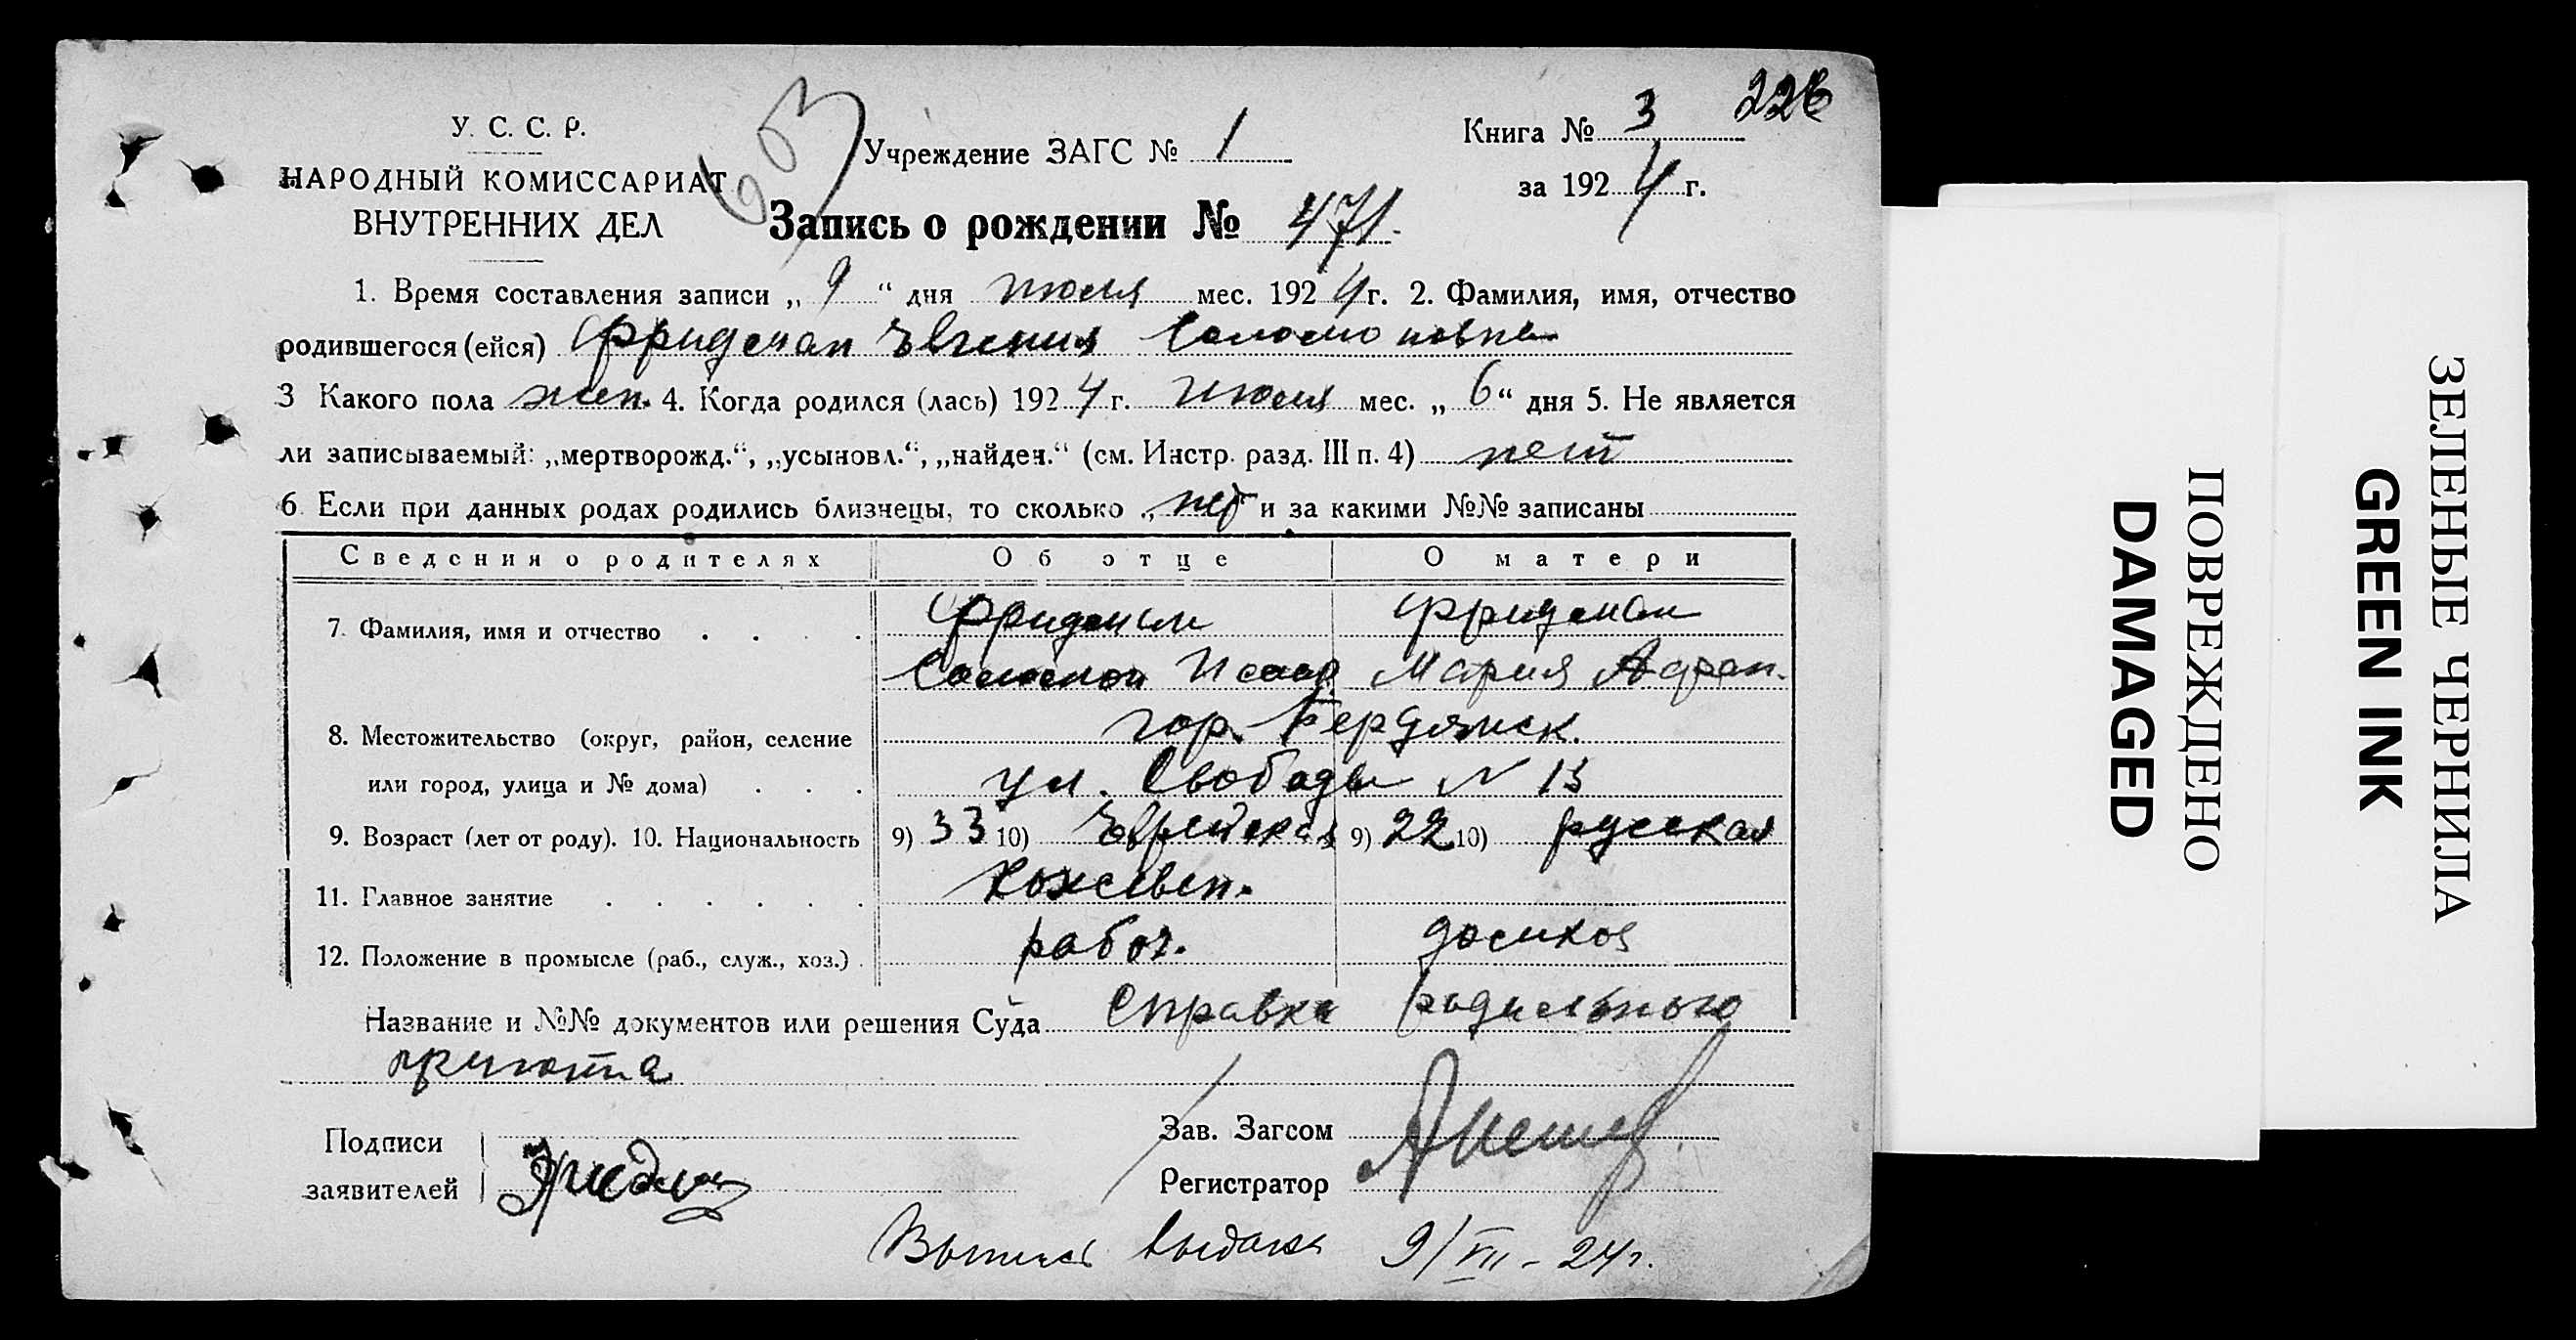 226
603
У. С. С. Р.
НАРОДНЫЙ КОМИССАРИАТ
ВНУТРЕННИХ ДЕЛ
Учреждение ЗАГС № 1
Книга № 3
за 1924 г.
Запись о рождении № 471.
1. Время составления записи „ 9 “ дня июля мес. 1924 г. 2. Фамилия, имя, отчество
родившегося (ейся) Фридман Евгения Соломоновна
3 Какого пола жен. 4. Когда родился (лась) 1924 г. июля мес. „ 6 “ дня 5. Не является
ли записываемый: „мертворожд.“, „усыновл.“, „найден.“ (см. Инстр. разд. III п. 4) нет
6. Если при данных родах родились близнецы, то сколько „ нет и за какими №№ записаны
Сведения о родителях Об отце О матери
7. Фамилия, имя и отчество Фридман Фридман
Соломон Исаар. Мария Афан.
8. Местожительство (округ, район, селение гор. Бердянск.
или город, улица и № дома) ул. Свободы N 13
9. Возраст (лет от роду). 10. Национальность 9) 33 10) Еврейская 9) 22 10) русская
11. Главное занятие Кожевен.
12. Положение в промысле (раб., служ., хоз.) рабоч. домхоз
Название и №№ документов или решения Суда Справка родильного
приюта
Подписи
заявителей
Зав. Загсом
Регистратор
Выпись выдана 9/VII - 24 г.
ПОВРЕЖДЕНО
DAMAGED
ЗЕЛЕНЫЕ ЧЕРНИЛА
GREEN INK